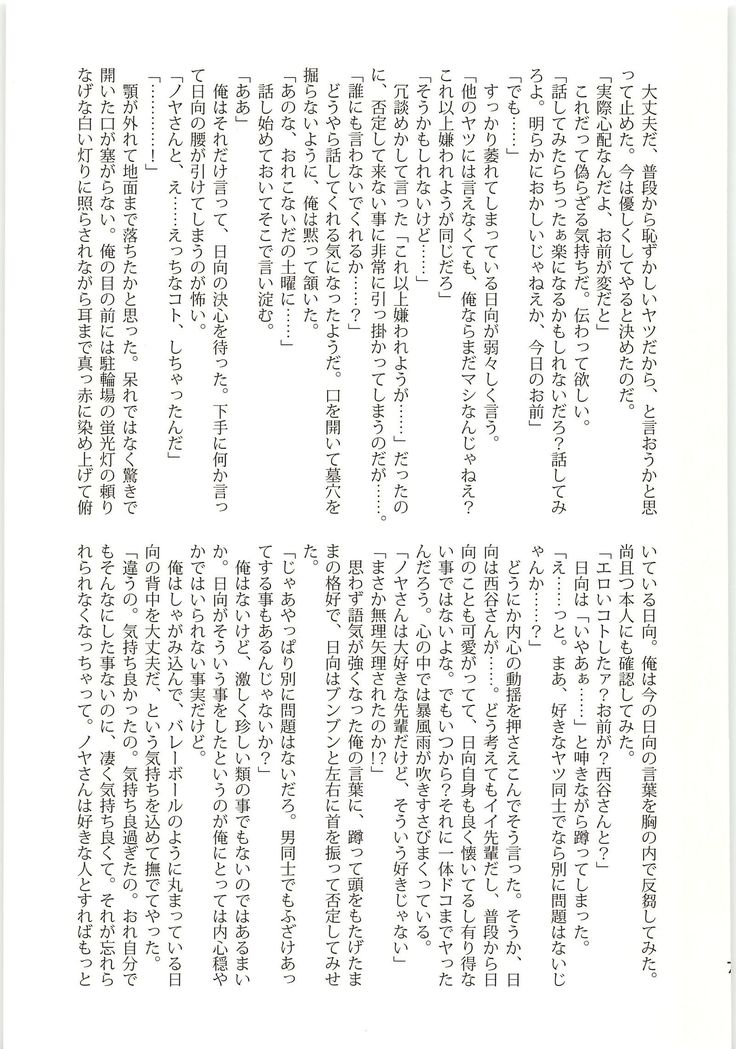 大丈夫だ、普段から恥ずかしいヤツだから、と言おうかと思
って止めた。今は優しくしてやると決めたのだ。
「実際心配なんだよ、お前が変だと」
これだって偽らざる気持ちだ。伝わって欲しい。
「話してみたらちったぁ楽になるかもしれないだろ？話してみ
ろよ。明らかにおかしいじゃねえか、今日のお前」
「でも……」
すっかり萎れてしまっている日向が弱々しく言う。
「他のヤツには言えなくても、俺ならまだマシなんじゃねえ？
これ以上嫌われようが同じだろ」
「そうかもしれないけど……」
冗談めかして言った「これ以上嫌われようが……」だったの
に、否定して来ない事に非常に引っ掛かってしまうのだが……。
「誰にも言わないでくれるか……？」
どうやら話してくれる気になったようだ。口を開いて墓穴を
掘らないように、俺は黙って頷いた。
「あのな、おれこないだの土曜に……」
話し始めておいてそこで言い淀む。
「ああ」
俺はそれだけ言って、日向の決心を待った。下手に何か言っ
て日向の腰が引けてしまうのが怖い。
「ノヤさんと、え……えっちなコト、しちゃったんだ」
「…………！」
顎が外れて地面まで落ちたかと思った。呆れではなく驚きで
開いた口が塞がらない。俺の目の前には駐輪場の蛍光灯の頼り
なげな白い灯りに照らされながら耳まで真っ赤に染め上げて俯
いている日向。俺は今の日向の言葉を胸の内で反芻してみた。
尚且つ本人にも確認してみた。
「エロいコトしたァ？お前が？西谷さんと？」
日向は「いやあぁ……」と呻きながら蹲ってしまった。
「え……っと。まあ、好きなヤツ同士でなら別に問題はないじ
ゃんか……？」
どうにか内心の動揺を押さえこんでそう言った。そうか、日
向は西谷さんが……。どう考えてもイイ先輩だし、普段から日
向のことも可愛がってて、日向自身も良く懐いてるし有り得な
い事ではないよな。でもいつから？それに一体ドコまでヤった
んだろう。心の中では暴風雨が吹きすさびまくっている。
「ノヤさんは大好きな先輩だけど、そういう好きじゃない」
「まさか無理矢理されたのか!?」
思わず語気が強くなった俺の言葉に、蹲って頭をもたげたま
まの格好で、日向はブンブンと左右に首を振って否定してみせ
た。
「じゃあやっぱり別に問題はないだろ。男同士でもふざけあっ
てする事もあるんじゃないか？」
俺はないけど、激しく珍しい類の事でもないのではあるまい
か。日向がそういう事をしたというのが俺にとっては内心穏や
かではいられない事実だけど。
俺はしゃがみ込んで、バレーボールのように丸まっている日
向の背中を大丈夫だ、という気持ちを込めて撫でてやった。
「違うの。気持ち良かったの。気持ち良過ぎたの。おれ自分で
もそんなにした事ないのに、凄く気持ち良くて。それが忘れら
れられなくなっちゃって。ノヤさんは好きな人とすればもっと